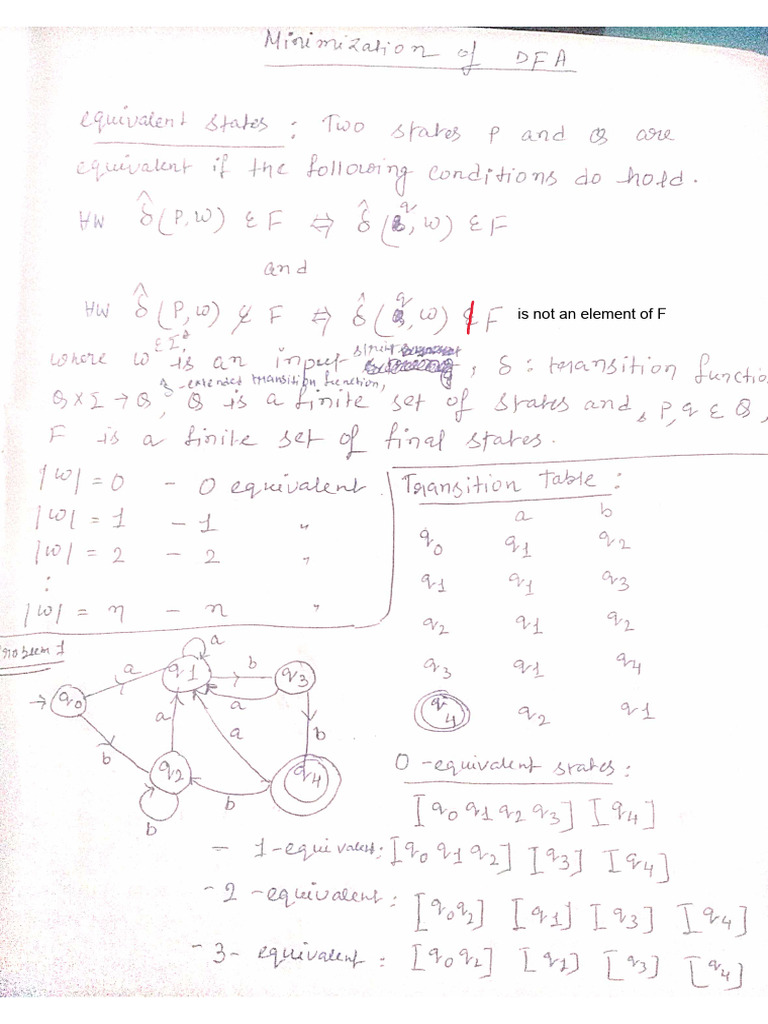 Minimization of DFA
equivalent states : Two states P and Q are
equivalent if the following conditions do hold.
∀w δ̂(P,w) ∈ F ⇔ δ̂(q,w) ∈ F
and
∀w δ̂(P,w) ∉ F ⇔ δ̂(q,w) ∉ F is not an element of F
where w ∈ Σ* is an input string, δ : transition functio
Q × Σ → Q, δ̂ - extended transition function, Q is a finite set of states and, P, q ∈ Q,
F is a finite set of final states.
|w| = 0 - 0 equivalent
|w| = 1 - 1 "
|w| = 2 - 2 "
:
|w| = n - n "
Transition table :
a b
q0 q1 q2
q1 q1 q3
q2 q1 q2
q3 q1 q4
q4 q2 q1
Problem 1
a
q1 b q3
a a
q0
a a b
b q2 q4
b
b
0 - equivalent states :
[q0 q1 q2 q3] [q4]
- 1 - equivalent : [q0 q1 q2] [q3] [q4]
- 2 - equivalent : [q0 q2] [q1] [q3] [q4]
- 3 - equivalent : [q0 q2] [q1] [q3] [q4]